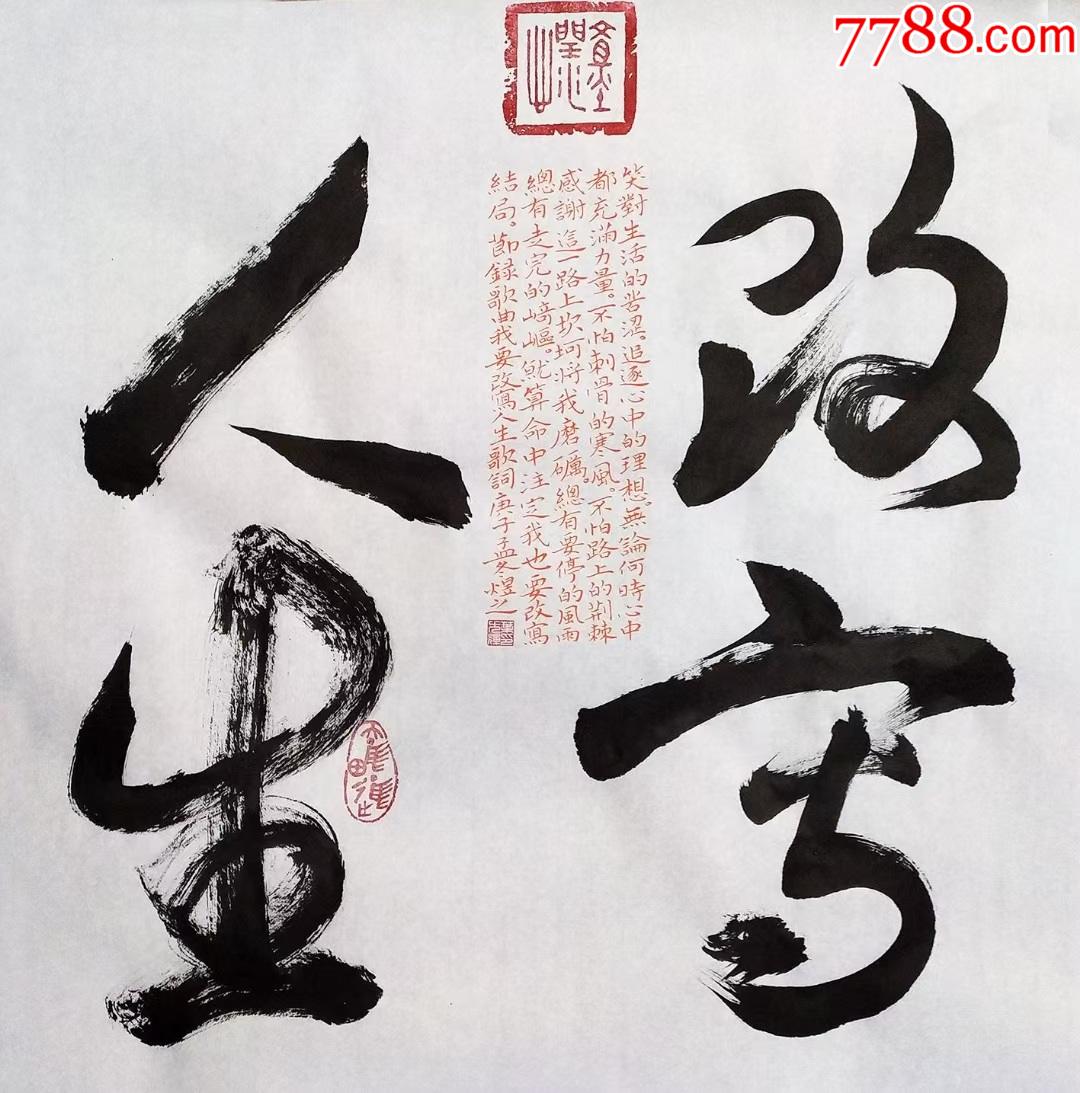 7788.com
改写
笑對生活的苦澀。追逐心中的理想。無論何時心中
都充滿力量。不怕刺骨的寒風。不怕路上的荆棘
感謝這一路上坎坷將我磨礪。總有要停的風雨
總有走完的崎嶇。就算命中注定我也要改寫
結局。節錄歌曲我要改寫人生歌詞庚子孟冬煜之
人生